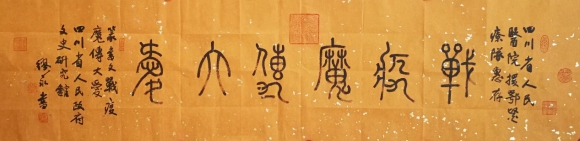 四川省人民
醫院援鄂醫
療隊惠存
戰疫魔傳大愛
篆書戰疫
魔傳大愛
四川省人民政府
文史研究館
書